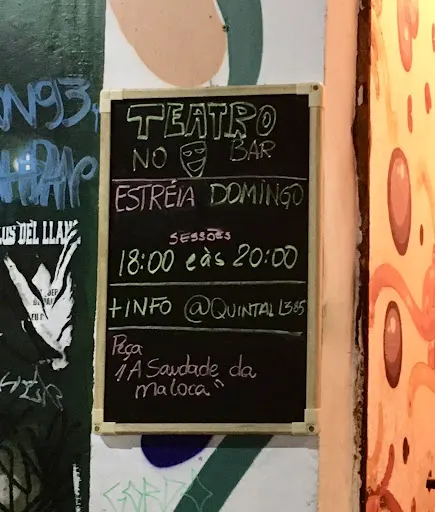 TEATRO
NO BAR
ESTRÉIA DOMINGO
SESSÕES
18:00 e às 20:00
+INFO @QUINTAL1385
Peça
"A Saudade da
maloca"
N93
LUS DEL LLANO
GORDO